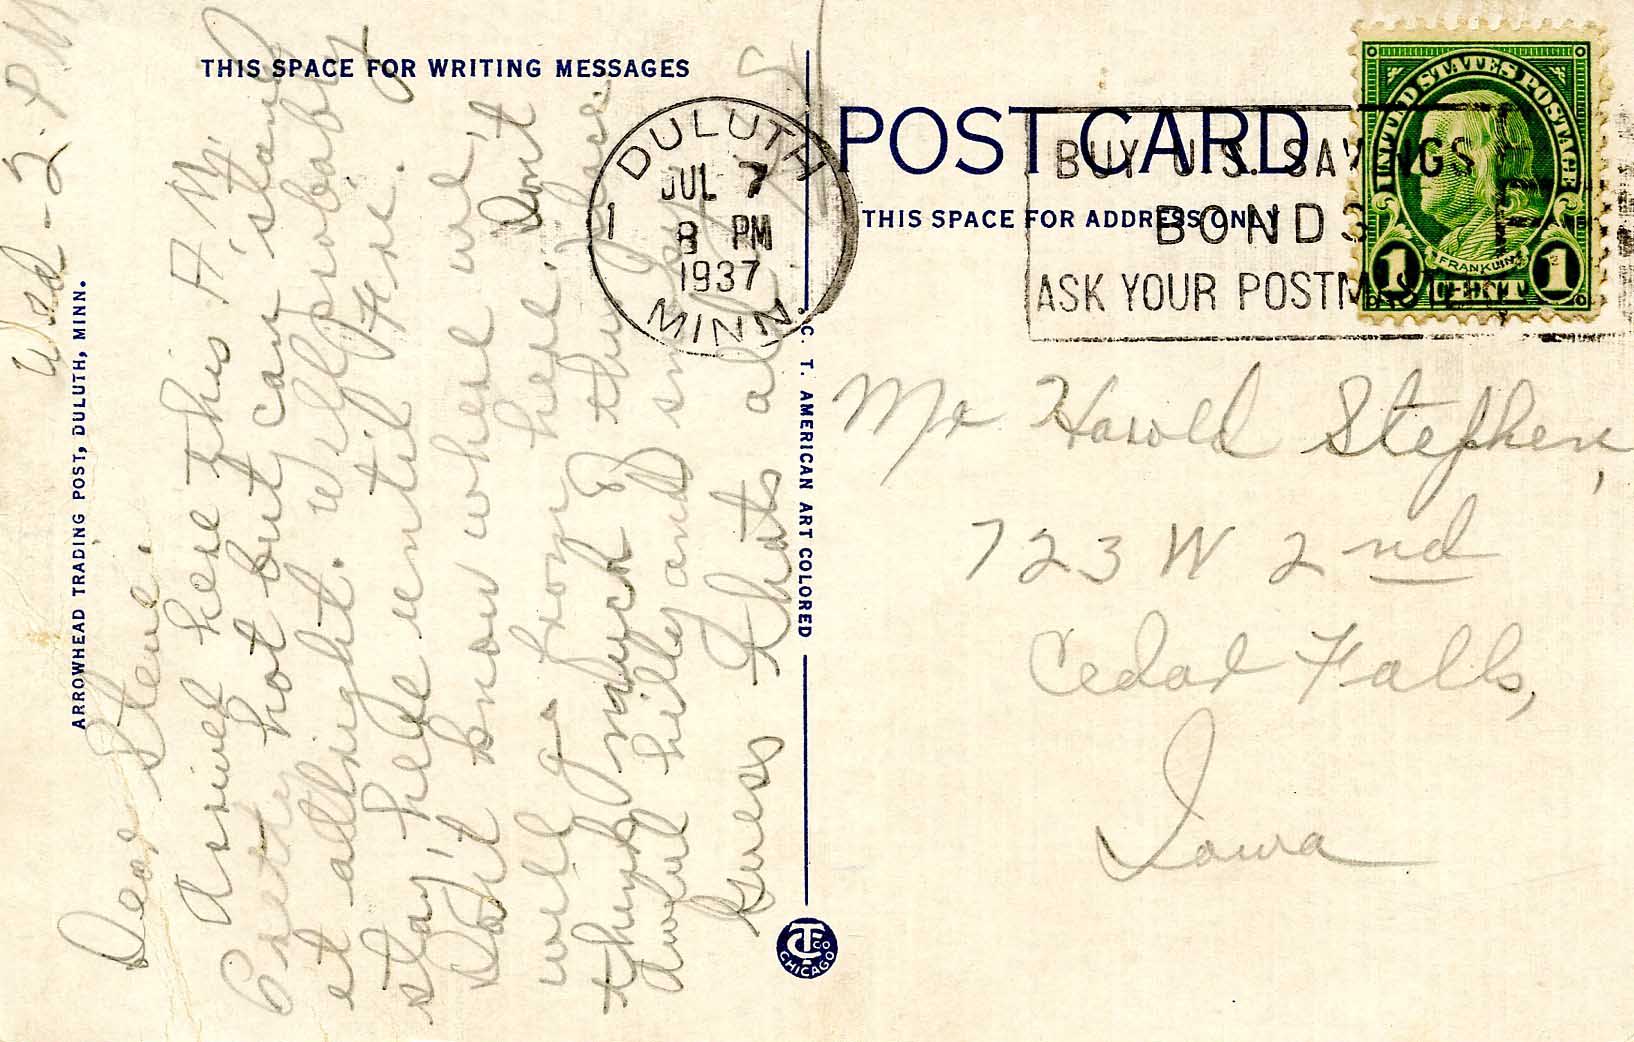 THIS SPACE FOR WRITING MESSAGES
Wed - 2 P M
Dear Steve:
Arrived here this A M.
Pretty hot but can stand
it allright. Will probably
stay here until Fri.
Don't know where we'll
will go from here. Don't
think much of this place.
awful hilly and
Guess thats all
ARROWHEAD TRADING POST, DULUTH, MINN.
C. T. AMERICAN ART COLORED
CT CO
CHICAGO
DULUTH
JUL 7
8 PM
1937
MINN.
1
POST CARD
THIS SPACE FOR ADDRESS ONLY
BUY U.S. SAVINGS
BONDS
ASK YOUR POSTMASTER
UNITED STATES POSTAGE
FRANKLIN
1 CENT 1
Mr Harold Stephen,
723 W 2nd
Cedar Falls,
Iowa